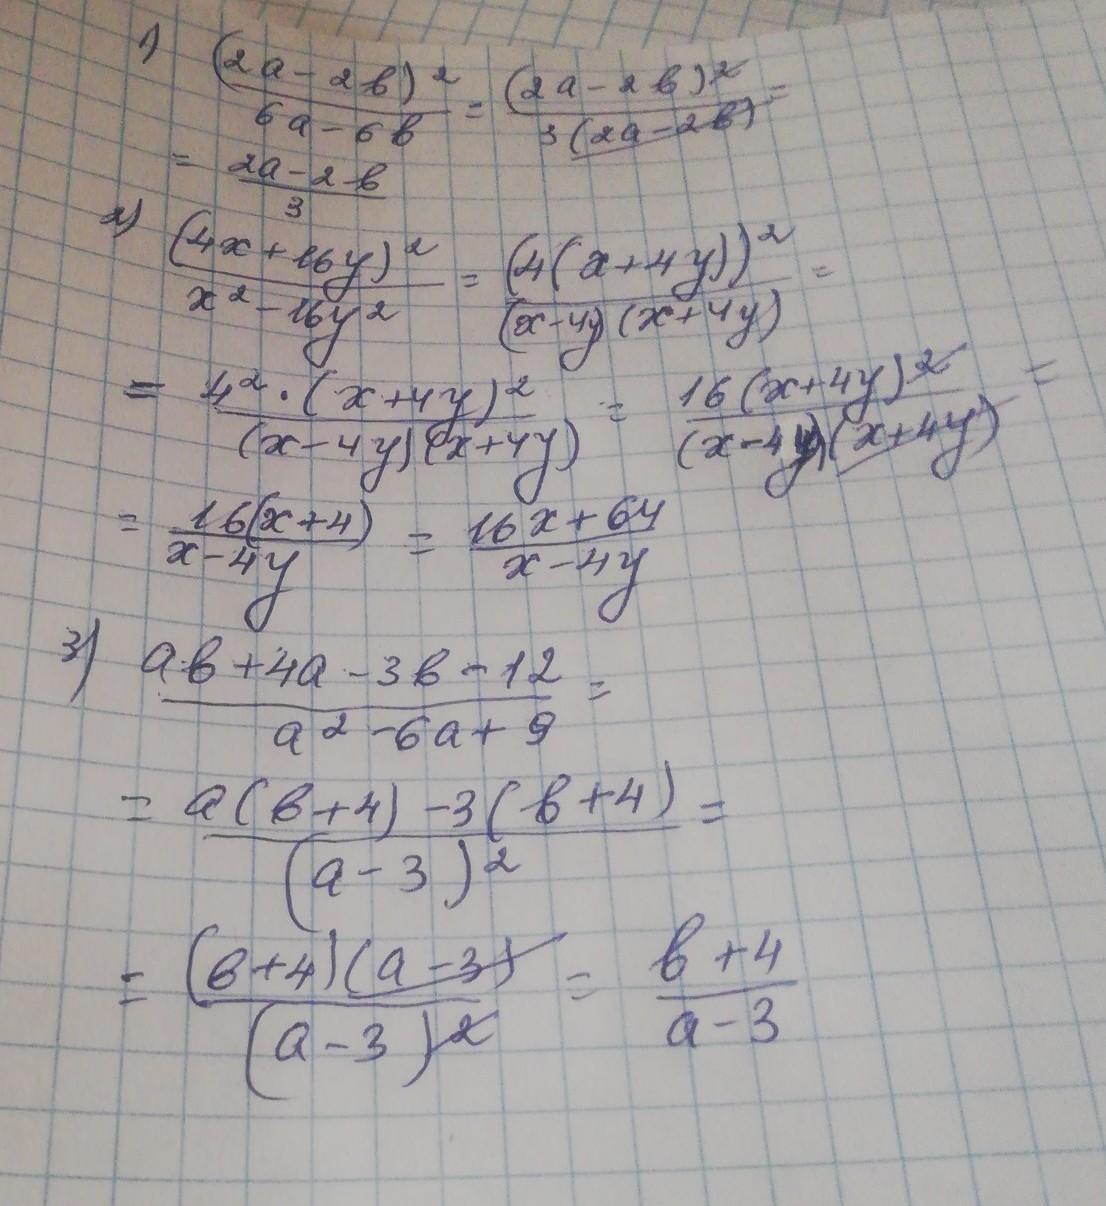 1) (2a-2b)²/6a-6b = (2a-2b)²/3(2a-2b) =
= 2a-2b/3
2) (4x+16y)²/x²-16y² = (4(x+4y))²/(x-4y)(x+4y) =
= 4²·(x+4y)²/(x-4y)(x+4y) = 16(x+4y)²/(x-4y)(x+4y) =
= 16(x+4)/x-4y = 16x+64/x-4y
3) ab+4a-3b-12/a²-6a+9 =
= a(b+4)-3(b+4)/(a-3)² =
= (b+4)(a-3)/(a-3)² = b+4/a-3